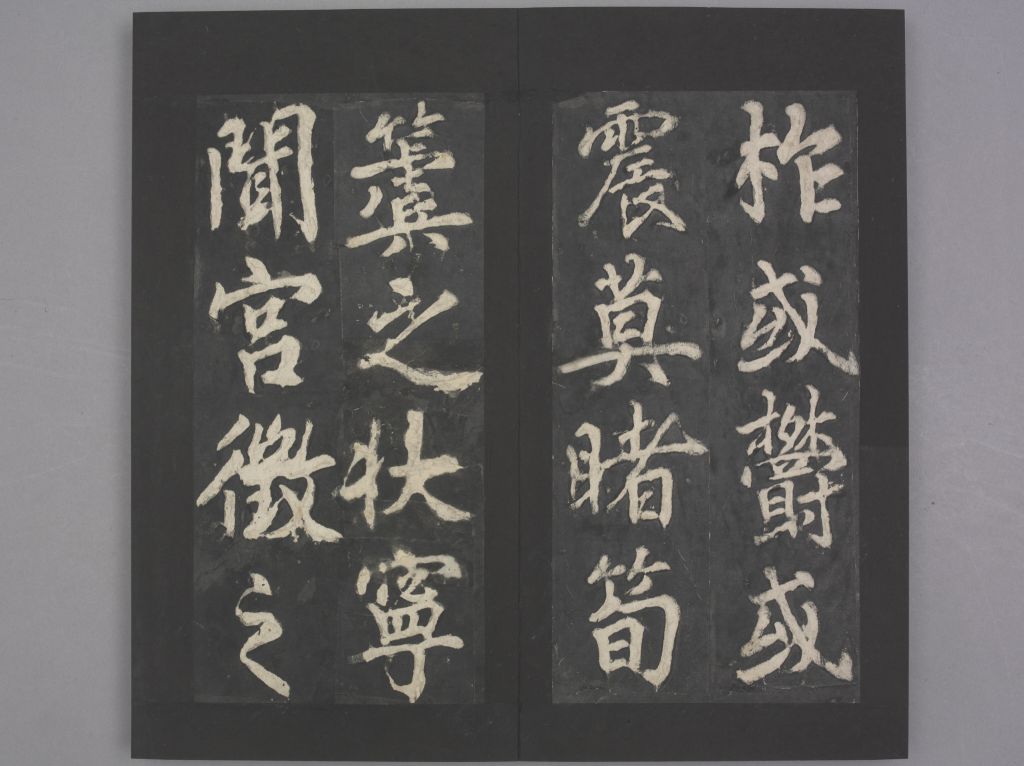 柞或欝或
震莫睹筍
簴之狀寧
聞宮徵之